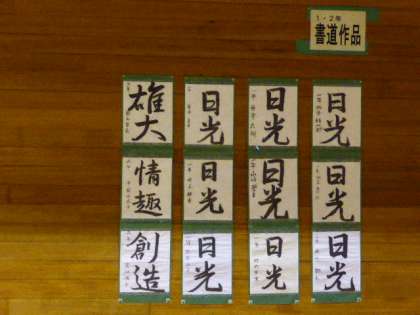 1・2年
書道作品
雄大
情趣
創造
日光
日光
日光
日光
日光
日光
日光
日光
日光